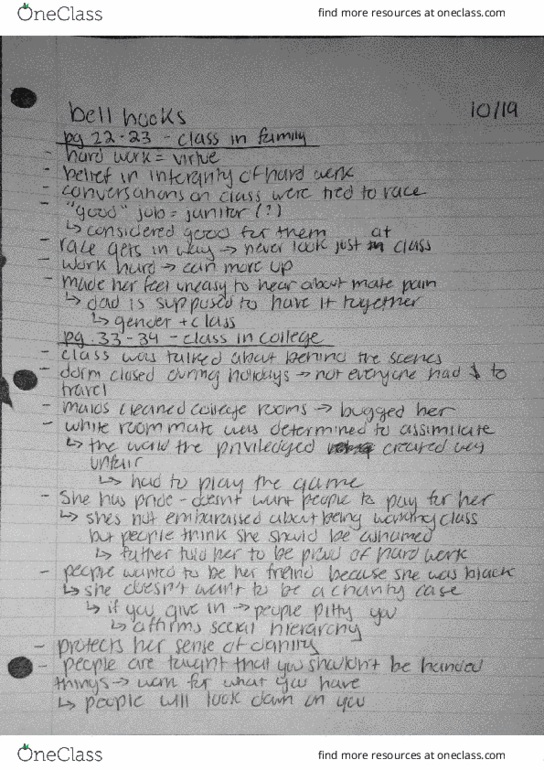 OneClass
find more resources at oneclass.com
bell hooks
10/19
pg 22-23 - class in family
- hard work = virtue
- belief in intergrity of hard work
- conversations on class were tied to race
- "good" job = janitor (?)
↳ considered good for them
- race gets in way → never look just at class
- work hard → can move up
- made her feel uneasy to hear about male pain
↳ dad is supposed to have it together
↳ gender + class
pg. 33-34 - class in college
- class was talked about behind the scenes
- dorm closed during holidays → not everyone had $ to
travel
- maids cleaned college rooms → bugged her
- white roommate was determined to assimilate
↳ the world the priviledged created was
unfair
↳ had to play the game
- She has pride - doesnt want people to pay for her
↳ shes not embarassed about being working class
but people think she should be ashamed
↳ father told her to be proud of hard work
- people wanted to be her freind because she was black
↳ she doesn't want to be a charity case
↳ if you give in → people pitty you
↳ affirms social hierarchy
- protects her sense of dignity
- people are taught that you shouldn't be handed
things → work for what you have
↳ people will look down on you
OneClass
find more resources at oneclass.com